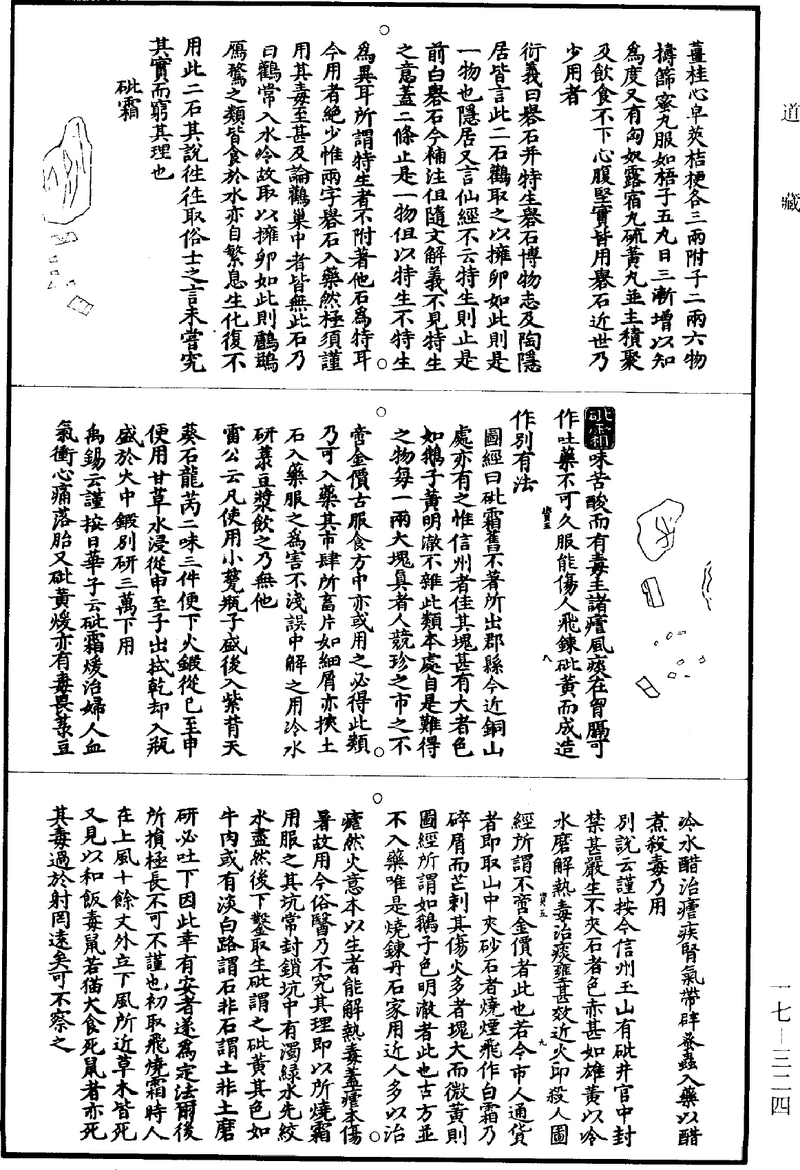 道藏
薑桂心皁莢桔梗各三兩附子二兩六物
擣篩蜜丸服如梧子五丸日三漸增以知
爲度又有匈奴露宿丸硫黃丸並主積聚
及飲食不下心腹堅實皆用礜石近世乃
少用者
衍義曰礜石并特生礜石博物志及陶隱
居皆言此二石鸛取之以擁卵如此則是
一物也隱居又言仙經不云特生則止是
前白礜石今補注但隨文解義不見特生
之意蓋二條止是一物但以特生不特生
爲異耳所謂特生者不附著他石爲特耳
今用者絶少惟兩字礜石入藥然極須謹
用其毒至甚及論鸛巢中者皆無此石乃
曰鸛常入水冷故取以擁卵如此則鸕鷀
鴈鶩之類皆食於水亦自繁息生化復不
用此二石其說往往取俗士之言未嘗究
其實而窮其理也
砒霜
砒霜味苦酸而有毒主諸瘧風痰在胷膈可
作吐藥不可久服能傷人飛鍊砒黃而成造
作別有法
圖經曰砒霜舊不著所出郡縣今近銅山
處亦有之惟信州者佳其塊甚有大者色
如鵝子黃明澈不雜此類本處自是難得
之物每一兩大塊真者人競珍之市之不
啻金價古服食方中亦或用之必得此類
乃可入藥其市肆所畜片如細屑亦挾土
石入藥服之爲害不淺誤中解之用冷水
研菉豆漿飲之乃無他
雷公云凡使用小甆瓶子盛後入紫背天
葵石龍芮二味三件便下火鍛從巳至申
便用甘草水浸從申至子出拭乾却入瓶
盛於火中鍛別研三萬下用
禹錫云謹按日華子云砒霜煖治婦人血
氣衝心痛落胎又砒黃煖亦有毒畏菉豆
冷水醋治瘧疾腎氣帶辟蚤蝨入藥以醋
煮殺毒乃用
別說云謹按今信州玉山有砒井官中封
禁甚嚴生不夾石者色赤甚如雄黃以冷
水磨解熱毒治痰壅甚效近火即殺人圖
經所謂不啻金價者此也若今市人通貨
者即取山中夾砂石者燒煙飛作白霜乃
碎屑而芒刺其傷火多者塊大而微黃則
圖經所謂如鵝子色明澈者此也古方並
不入藥唯是燒鍊丹石家用近人多以治
瘧然火意本以生者能解熱毒蓋瘧本傷
暑故用今俗醫乃不究其理即以所燒霜
用服之其坑常封鎖坑中有濁綠水先絞
水盡然後下鑿取生砒謂之砒黃其色如
牛肉或有淡白路謂石非石謂土非土磨
研必吐下因此幸有安者遂爲定法爾後
所損極長不可不謹也初取飛燒霜時人
在上風十餘丈外立下風所近草木皆死
又見以和飯毒鼠若猫犬食死鼠者亦死
其毒過於射罔遠矣可不察之
一七—三二四